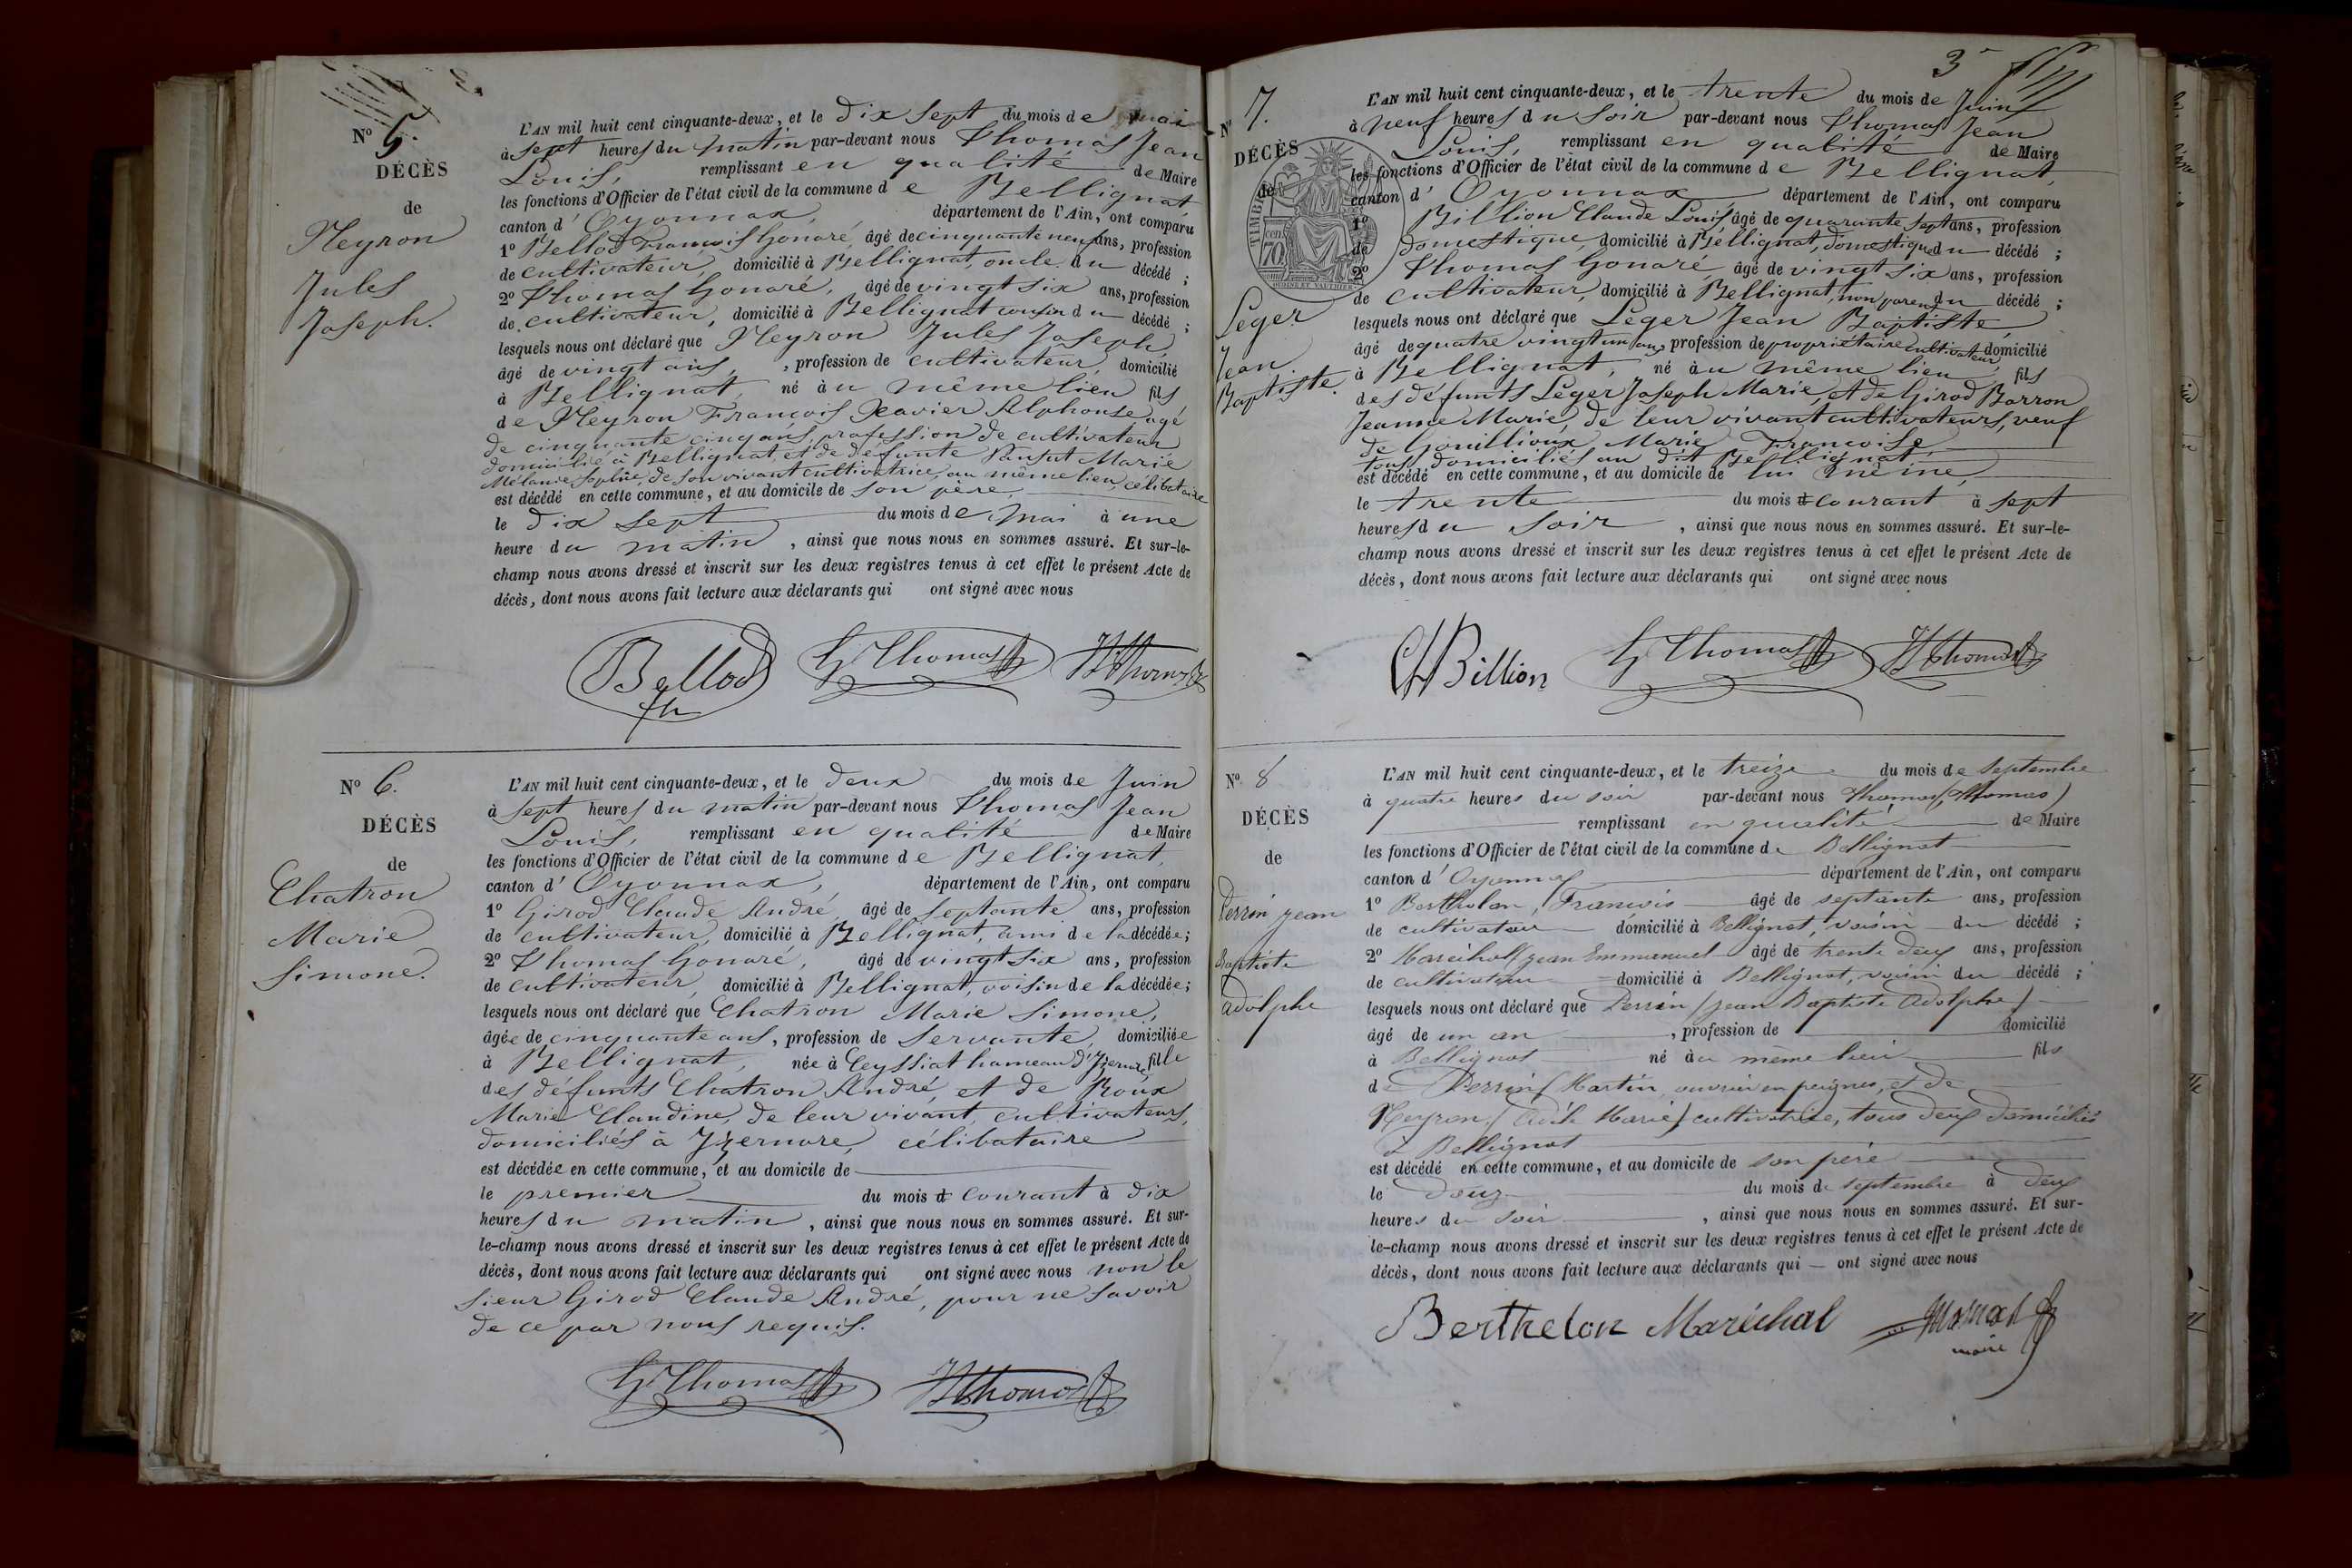 N° 5.
DÉCÈS
de
Neyron
Jules
Joseph.
L'AN mil huit cent cinquante-deux, et le dix sept du mois de mai
à sept heures du matin par-devant nous Thomas Jean
Louis, remplissant en qualité de Maire
les fonctions d'Officier de l'état civil de la commune de Bellignat,
canton d'Oyonnax, département de l'Ain, ont comparu
1° Bellod François Honoré, âgé de cinquante neuf ans, profession
de cultivateur, domicilié à Bellignat, oncle du décédé ;
2° Thomas Honoré, âgé de vingt six ans, profession
de cultivateur, domicilié à Bellignat cousin du décédé ;
lesquels nous ont déclaré que Neyron Jules Joseph,
âgé de vingt ans, , profession de cultivateur, domicilié
à Bellignat, né au même lieu fils
de Neyron François Xavier Alphonse âgé
de cinquante cinq ans, profession de cultivateur
domicilié à Bellignat, et de défunte Marie
Mélanie Sophie, de son vivant cultivatrice, au même lieu, célibataire
est décédé en cette commune, et au domicile de son père,
le dix sept du mois de mai à une
heure du matin, ainsi que nous nous en sommes assuré. Et sur-le-
champ nous avons dressé et inscrit sur les deux registres tenus à cet effet le présent Acte de
décès, dont nous avons fait lecture aux déclarants qui ont signé avec nous
Bellod fh
H Thomas
JL Thomas
N° 6.
DÉCÈS
de
Chatron
Marie
Simone.
L'AN mil huit cent cinquante-deux, et le deux du mois de Juin
à sept heures du matin par-devant nous Thomas Jean
Louis, remplissant en qualité de Maire
les fonctions d'Officier de l'état civil de la commune de Bellignat,
canton d'Oyonnax, département de l'Ain, ont comparu
1° Girod Claude André, âgé de septante ans, profession
de cultivateur, domicilié à Bellignat, ami de la décédée;
2° Thomas Honoré, âgé de vingt six ans, profession
de cultivateur, domicilié à Bellignat, voisin de la décédée;
lesquels nous ont déclaré que Chatron Marie Simone,
âgée de cinquante ans, profession de Servante, domiciliée
à Bellignat, née à Ceyssiat hameau d'Yzernore, fille
des défunts Chatron André, et de Roux
Marie Claudine, de leur vivant cultivateurs,
domiciliés à Yzernore, célibataire
est décédée en cette commune, et au domicile de
le premier du mois d courant à dix
heures du matin, ainsi que nous nous en sommes assuré. Et sur-
le-champ nous avons dressé et inscrit sur les deux registres tenus à cet effet le présent Acte de
décès, dont nous avons fait lecture aux déclarants qui ont signé avec nous non le
sieur Girod Claude André, pour ne savoir
de ce par nous requis.
H Thomas
JL Thomas
3
N° 7.
DÉCÈS
de
Léger
Jean
Baptiste.
TIMBRE
70
OUDINÉ ET VAUTHIER
L'AN mil huit cent cinquante-deux, et le trente du mois de Juin
à neuf heures du soir par-devant nous Thomas Jean
Louis, remplissant en qualité de Maire
les fonctions d'Officier de l'état civil de la commune de Bellignat,
canton d'Oyonnax, département de l'Ain, ont comparu
1° Billion Claude Louis, âgé de quarante sept ans, profession
de domestique, domicilié à Bellignat, domestique du décédé ;
2° Thomas Honoré âgé de vingt six ans, profession
de cultivateur, domicilié à Bellignat, non parent du décédé ;
lesquels nous ont déclaré que Léger Jean Baptiste,
âgé de quatre vingt un ans, profession de propriétaire cultivateur, domicilié
à Bellignat, né au même lieu, fils
des défunts Léger Joseph Marie, et de Girod Barron
Jeanne Marie, de leur vivant cultivateurs, veuf
de Gouillioux Marie Françoise
tous domiciliés au dit Bellignat
est décédé en cette commune, et au domicile de lui même,
le trente du mois d courant à sept
heures du soir, ainsi que nous nous en sommes assuré. Et sur-le-
champ nous avons dressé et inscrit sur les deux registres tenus à cet effet le présent Acte de
décès, dont nous avons fait lecture aux déclarants qui ont signé avec nous
CL Billion
H Thomas
JL Thomas
N° 8
DÉCÈS
de
Perrin jean
Baptiste
adolphe
L'AN mil huit cent cinquante-deux, et le treize du mois de septembre
à quatre heures du soir par-devant nous Thomas (Thomas)
remplissant en qualité de Maire
les fonctions d'Officier de l'état civil de la commune de Bellignat
canton d'Oyonnax département de l'Ain, ont comparu
1° Berthelon, (François âgé de septante ans, profession
de cultivateur domicilié à Bellignat, voisin du décédé ;
2° Maréchal (jean Emmanuel âgé de trente deux ans, profession
de cultivateur domicilié à Bellignat, voisin du décédé ;
lesquels nous ont déclaré que Perrin (jean Baptiste adolphe)
âgé de un an, profession de domicilié
à Bellignat né au même lieu fils
de Perrin (Martin, ouvrier en peignes, et de
Neyron, ( Marie) cultivatrice, tous deux domiciliés
à Bellignat
est décédé en cette commune, et au domicile de son père
le douze du mois de septembre à deux
heures du soir, ainsi que nous nous en sommes assuré. Et sur-
le-champ nous avons dressé et inscrit sur les deux registres tenus à cet effet le présent Acte de
décès, dont nous avons fait lecture aux déclarants qui — ont signé avec nous
Berthelon Maréchal Thomas
maire